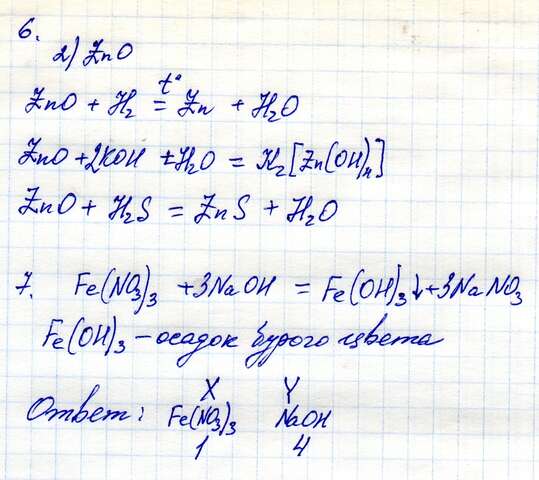 6.
2) ZnO
ZnO + H₂ =^{t°} Zn + H₂O
ZnO + 2KOH + H₂O = K₂[Zn(OH)₄]
ZnO + H₂S = ZnS + H₂O
7. Fe(NO₃)₃ + 3NaOH = Fe(OH)₃↓ + 3NaNO₃
Fe(OH)₃ – осадок бурого цвета
X Y
Ответ: Fe(NO₃)₃ NaOH
1 4